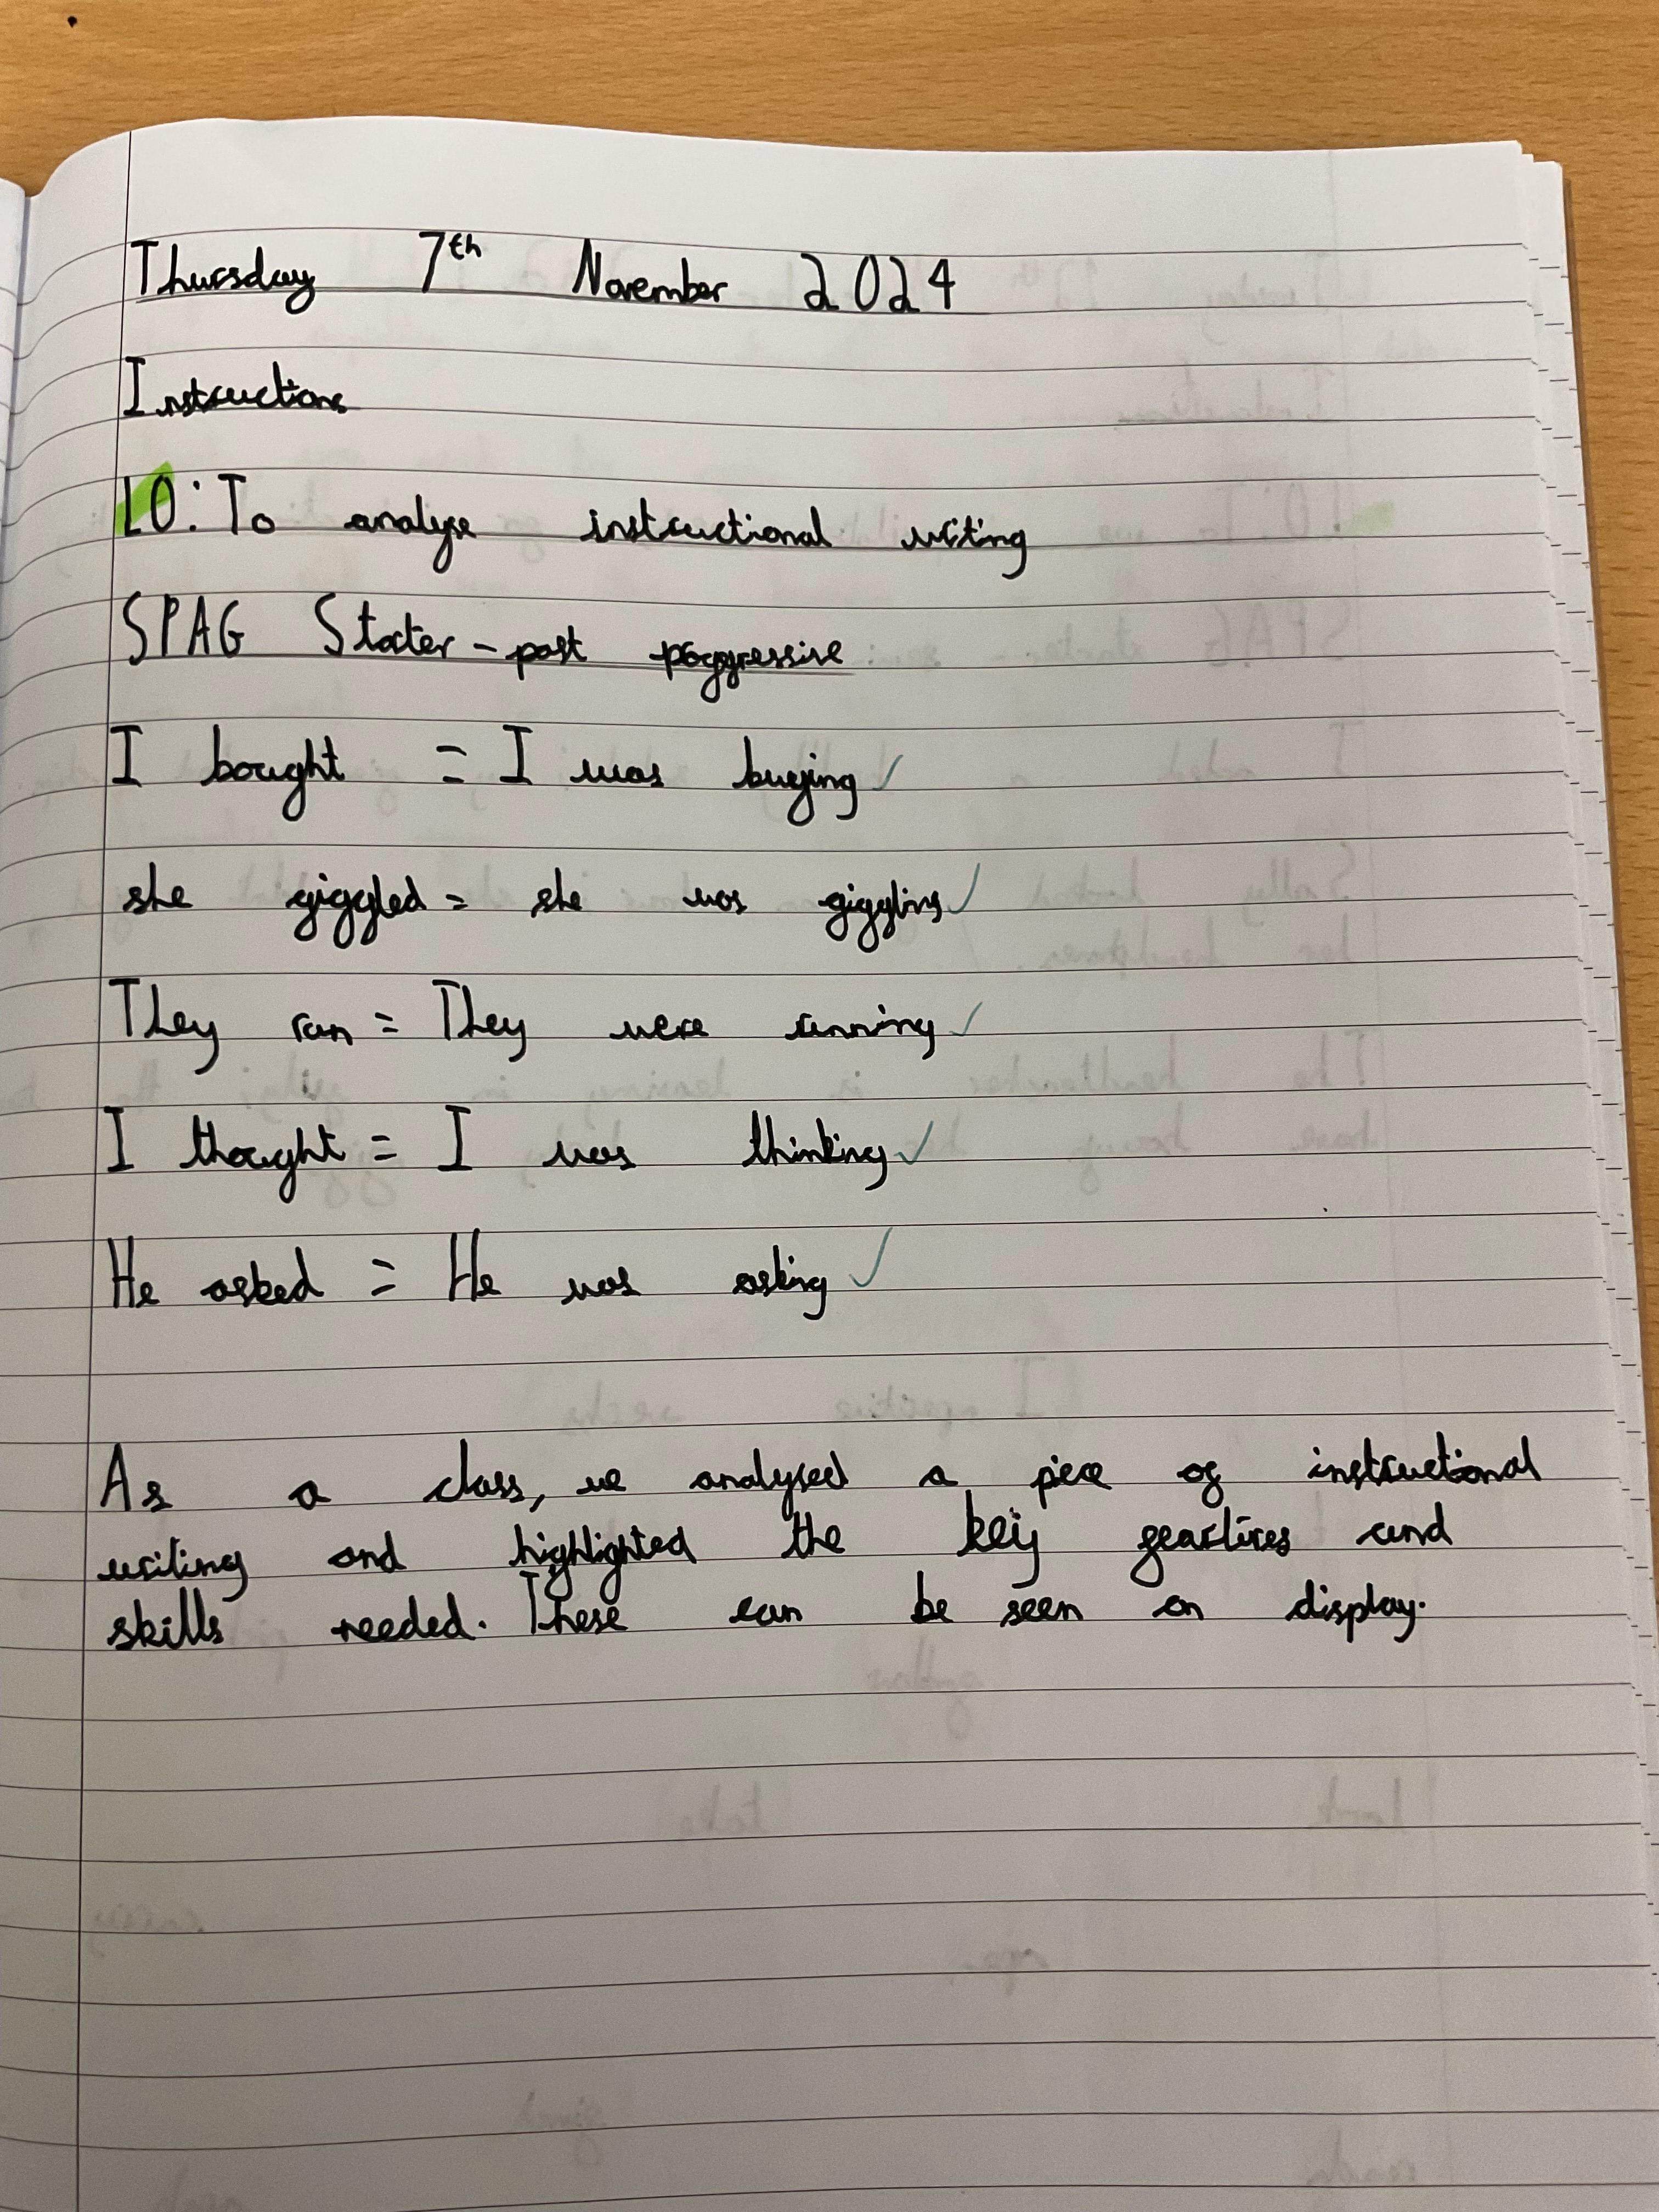 Thursday 7th November 2024
Instructions
LO: To analyse instructional writing
SPAG Starter - past progressive
I bought = I was buying ✓
she giggled = she was giggling ✓
They ran = They were running ✓
I thought = I was thinking ✓
He asked = He was asking ✓
As a class, we analysed a piece of instructional
writing and highlighted the key features and
skills needed. These can be seen on display.